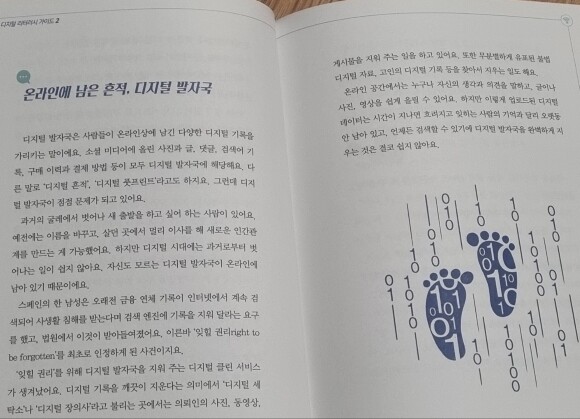 디지털 리터러시 가이드 2
온라인에 남은 흔적, 디지털 발자국
디지털 발자국은 사람들이 온라인상에 남긴 다양한 디지털 기록을
가리키는 말이에요. 소셜 미디어에 올린 사진과 글, 댓글, 검색어 기
록, 구매 이력과 결제 방법 등이 모두 디지털 발자국에 해당해요. 다
른 말로 '디지털 흔적', '디지털 풋프린트'라고도 하지요. 그런데 디지
털 발자국이 점점 문제가 되고 있어요.
과거의 굴레에서 벗어나 새 출발을 하고 싶어 하는 사람이 있어요.
예전에는 이름을 바꾸고, 살던 곳에서 멀리 이사를 해 새로운 인간관
계를 만드는 게 가능했어요. 하지만 디지털 시대에는 과거로부터 벗
어나는 일이 쉽지 않아요. 자신도 모르는 디지털 발자국이 온라인에
남아 있기 때문이에요.
스페인의 한 남성은 오래전 금융 연체 기록이 인터넷에서 계속 검
색되어 사생활 침해를 받는다며 검색 엔진에 기록을 지워 달라는 요구
를 했고, 법원에서 이것이 받아들여졌어요. 이른바 '잊힐 권리right to
be forgotten'를 최초로 인정하게 된 사건이지요.
'잊힐 권리'를 위해 디지털 발자국을 지워 주는 디지털 클린 서비스
가 생겨났어요. 디지털 기록을 깨끗이 지운다는 의미에서 '디지털 세
탁소'나 '디지털 장의사'라고 불리는 곳에서는 의뢰인의 사진, 동영상,
게시물을 지워 주는 일을 하고 있어요. 또한 무분별하게 유포된 불법
디지털 자료, 고인의 디지털 기록 등을 찾아서 지우는 일도 해요.
온라인 공간에서는 누구나 자신의 생각과 의견을 말하고, 글이나
사진, 영상을 쉽게 올릴 수 있어요. 하지만 이렇게 업로드된 디지털
데이터는 시간이 지나면 흐려지고 잊히는 사람의 기억과 달리 오랫동
안 남아 있고, 언제든 검색할 수 있기에 디지털 발자국을 완벽하게 지
우는 것은 결코 쉽지 않아요.